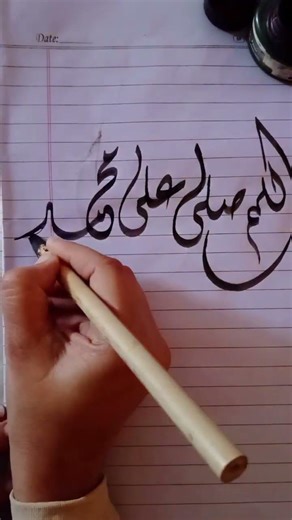 Date:
اللهم صلى على محمد